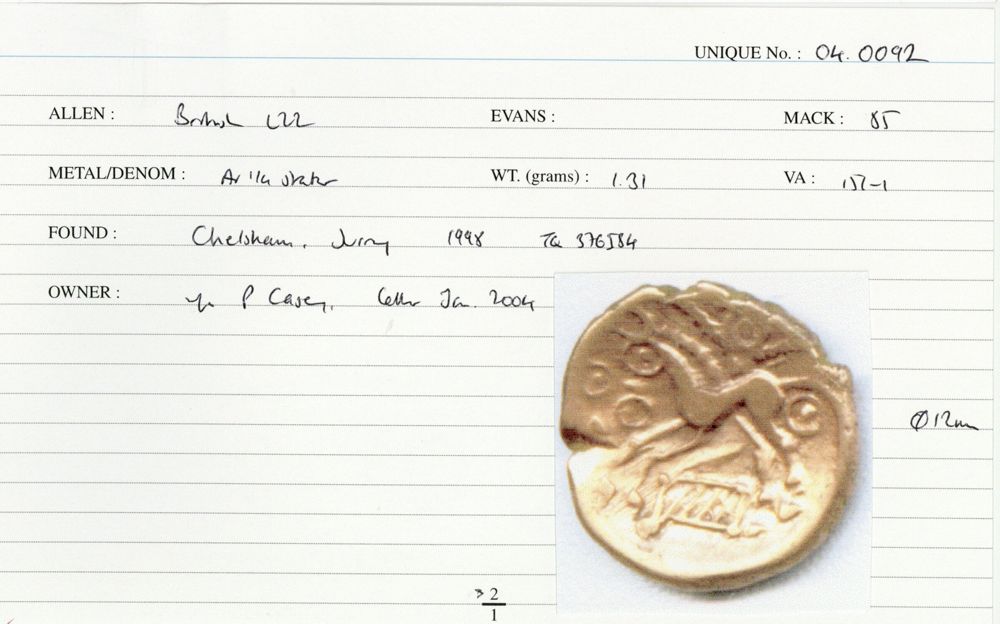 UNIQUE No. : 04.0092
ALLEN : British L22 EVANS : MACK : 85
METAL/DENOM : AV 1/4 stater WT. (grams) : 1.31 VA : 151-1
FOUND : Chelsham, Surrey 1998 TQ 376584
OWNER : P Casey, Jan. 2004
Ø 12mm
2
1